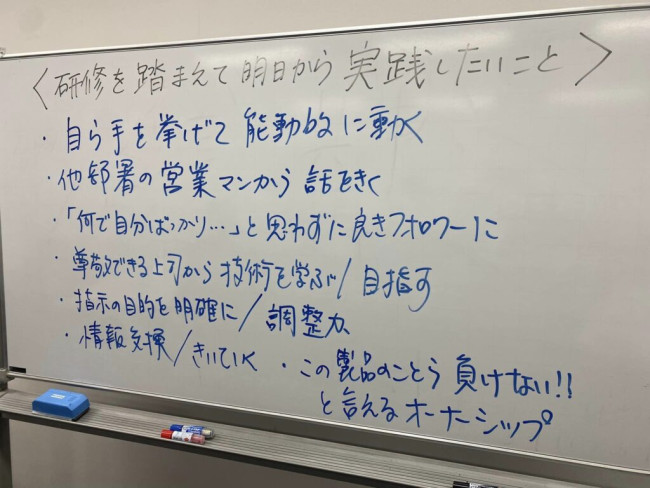 〈研修を踏まえて明日から実践したいこと〉
・自ら手を挙げて能動的に動く
・他部署の営業マンから話をきく
・「何で自分ばっかり…」と思わずに良きフォロワーに
・尊敬できる上司から技術を学ぶ/目指す
・指示の目的を明確に/調整力
・情報交換/きいていく
・この製品のことなら負けない!!
と言えるオーナーシップ